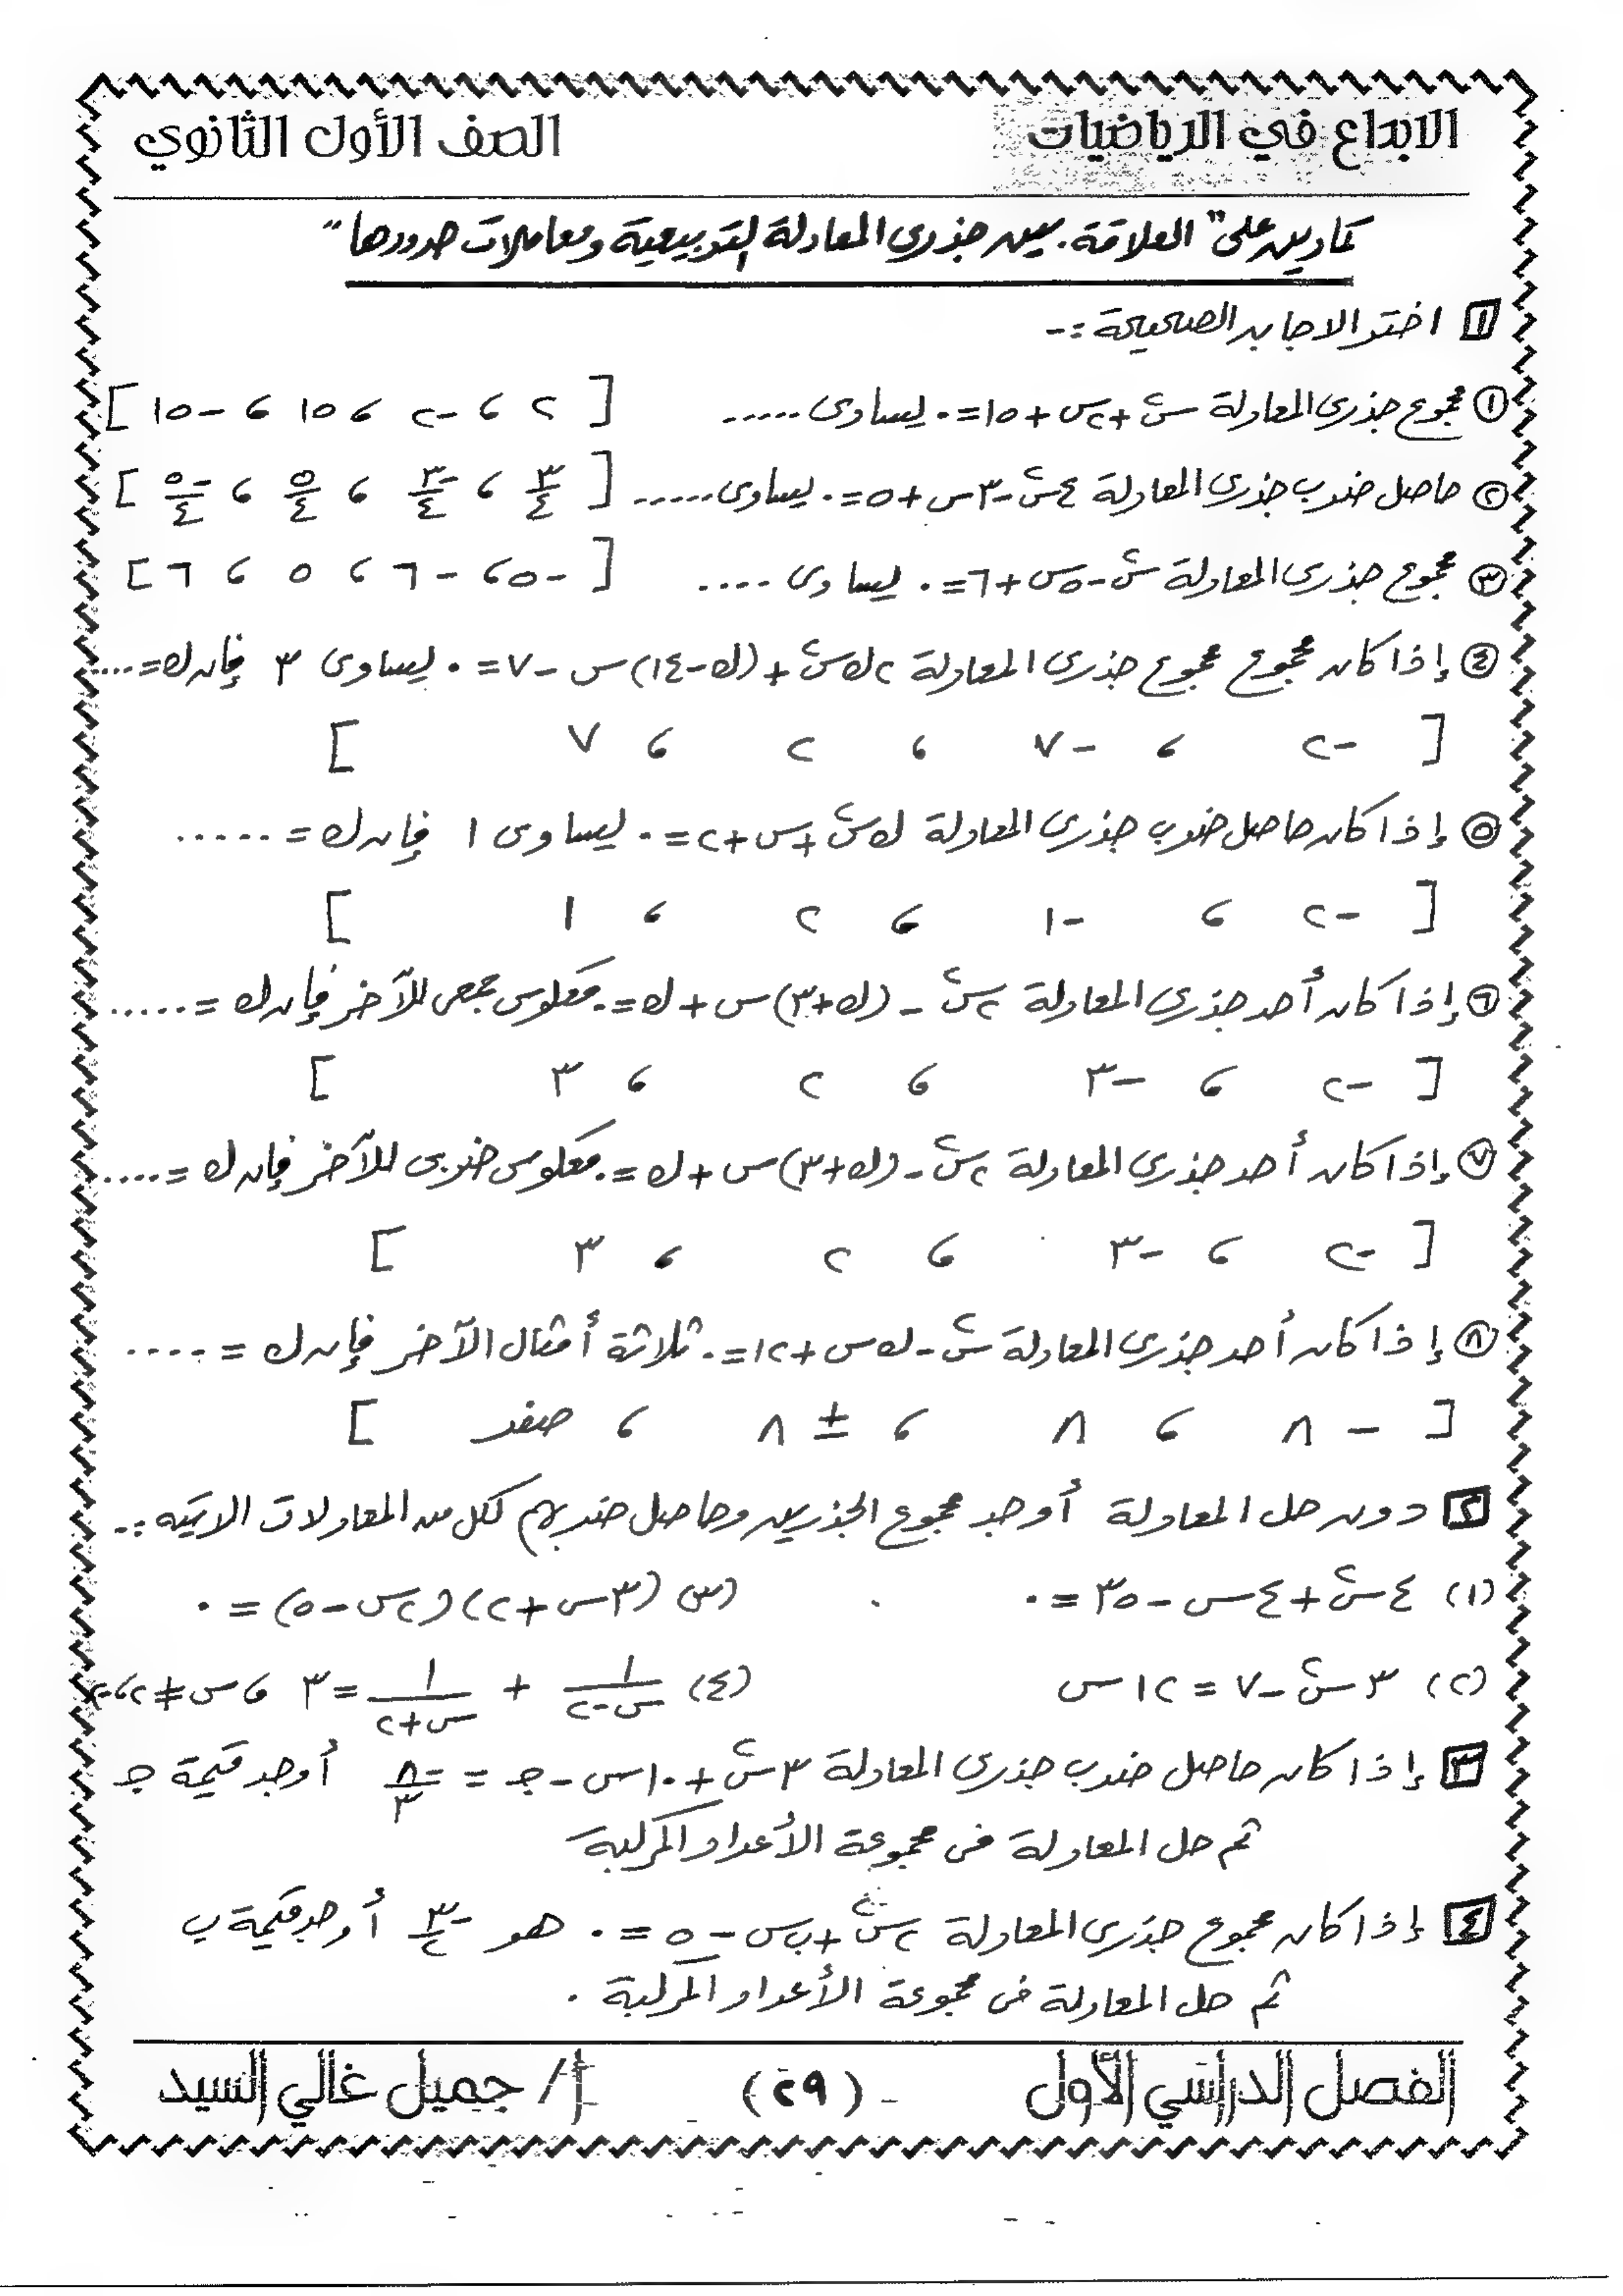 الابداع في الرياضيات الصف الأول الثانوي
تمارين على "العلاقة بين جذرى المعادلة التربيعية ومعاملات حدودها"
١ اختر الاجابه الصحيحة :-
① مجموع جذرى المعادلة س٢ + ٢س + ١٥ = ٠ يساوى ..... [ ٢ ، -٢ ، ١٥ ، -١٥ ]
② حاصل ضرب جذرى المعادلة ٤س٢ - ٣س + ٥ = ٠ يساوى ..... [ ٣/٤ ، -٣/٤ ، ٥/٤ ، -٥/٤ ]
③ مجموع جذرى المعادلة س٢ - ٥س + ٦ = ٠ يساوى .... [ -٥ ، -٦ ، ٥ ، ٦ ]
④ إذا كان مجموع مجموع جذرى المعادلة ٢ك س٢ + (ك - ١٤) س - ٧ = ٠ يساوى ٣ فإن ك = ....
[ -٢ ، -٧ ، ٢ ، ٧ ]
⑤ إذا كان حاصل ضرب جذرى المعادلة ك س٢ + س + ٢ = ٠ يساوى ١ فإن ك = .....
[ -٢ ، -١ ، ٢ ، ١ ]
⑥ إذا كان أحد جذرى المعادلة ٢س٢ - (ك + ٣) س + ك = ٠ معكوس جمعى للآخر فإن ك = .....
[ -٢ ، -٣ ، ٢ ، ٣ ]
⑦ إذا كان أحد جذرى المعادلة ٢س٢ - (ك + ٣) س + ك = ٠ معكوس ضربى للآخر فإن ك = ....
[ -٢ ، -٣ ، ٢ ، ٣ ]
⑧ إذا كان أحد جذرى المعادلة س٢ - ك س + ١٢ = ٠ ثلاثة أمثال الآخر فإن ك = ....
[ -٨ ، ٨ ، ± ٨ ، صفر ]
٢ دون حل المعادلة أوجد مجموع الجذرين وحاصل ضربهم لكل من المعادلات الاتيه :-
(١) ٤س٢ + ٤س - ٣٥ = ٠ (٣) (٣س + ٢) (٢س - ٥) = ٠
(٢) ٣س٢ - ٧ = ١٢س (٤) ١/(س - ٢) + ١/(س + ٢) = ٣ ، س ≠ ٢ ، -٢
٣ إذا كان حاصل ضرب جذرى المعادلة ٣س٢ + ١٠س - جـ = -٨/٣ أوجد قيمة جـ
ثم حل المعادلة فى مجموعة الأعداد المركبة
٤ إذا كان مجموع جذرى المعادلة ٢س٢ + ب س - ٥ = ٠ هو -٣/٢ أوجد قيمة ب
ثم حل المعادلة فى مجموعة الأعداد المركبة .
الفصل الدراسي الأول (٢٩) أ/ جميل غالي السيد